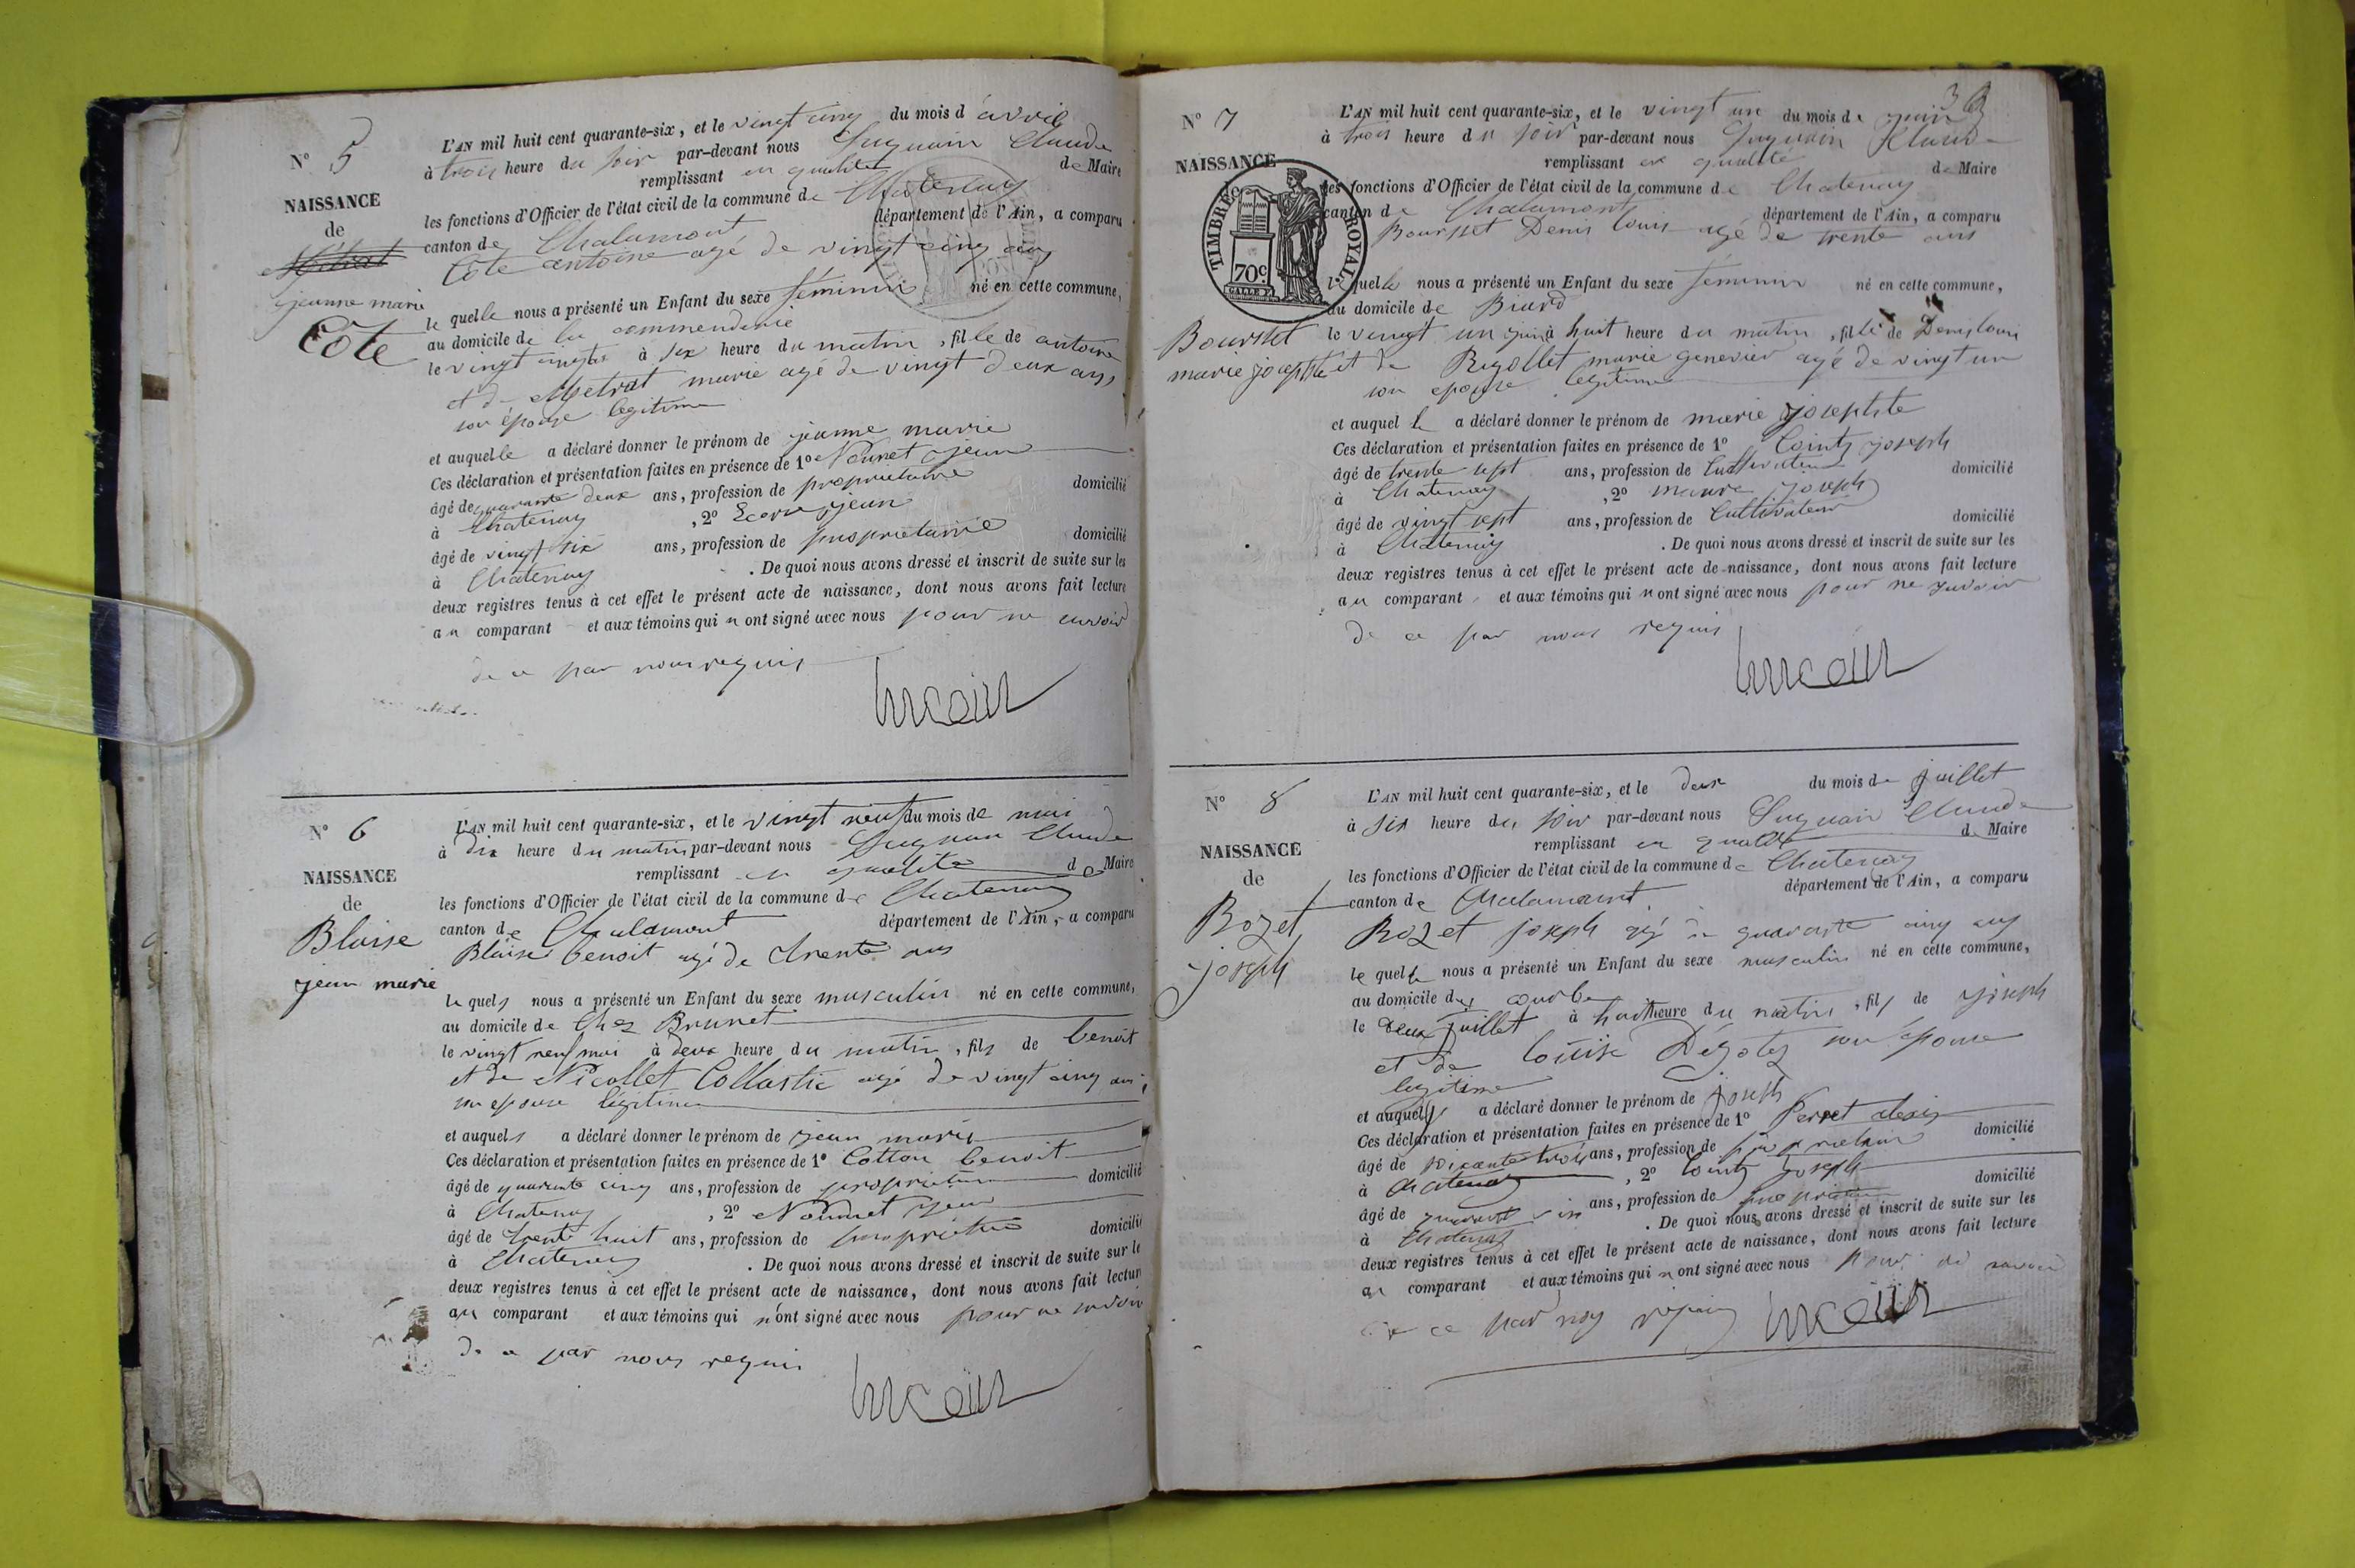 N° 5
NAISSANCE
de
jeanne marie
Côte
L'AN mil huit cent quarante-six, et le vingt cinq du mois d'avril
à trois heure du soir par-devant nous Claude
remplissant en qualité de Maire
les fonctions d'Officier de l'état civil de la commune de Chatenay
canton de Chalamont département de l'Ain, a comparu
Côte antoine agé de vingt cinq ans
le quelle nous a présenté un Enfant du sexe féminin né en cette commune,
au domicile de la commenderie
le vingt à six heure du matin, fille de antoine
et de Metrat marie agé de vingt deux ans
son épouse legitime
et auquelle a déclaré donner le prénom de jeanne marie
Ces déclaration et présentation faites en présence de 1° jean
âgé de quarante deux ans, profession de propriétaire domicilié
à Chatenay, 2° jean
âgé de vingt six ans, profession de propriétaire domicilié
à Chatenay. De quoi nous avons dressé et inscrit de suite sur les
deux registres tenus à cet effet le présent acte de naissance, dont nous avons fait lecture
au comparant et aux témoins qui n ont signé avec nous pour ne
de ce par nous requis
N° 6
NAISSANCE
de
Blaise
jean marie
L'AN mil huit cent quarante-six, et le vingt neuf du mois de mai
à dix heure du matin par-devant nous Claude
remplissant en qualité de Maire
les fonctions d'Officier de l'état civil de la commune de Chatenay
canton de Chalamont département de l'Ain, a comparu
Blaise benoit agé de trente ans
le quels nous a présenté un Enfant du sexe musculin né en cette commune,
au domicile de Chez Brunet
le vingt neuf mai à deux heure du matin, fils de benoit
et de Nicollet Collastie agé de vingt cinq ans
son epouse légitime
et auquels a déclaré donner le prénom de jean marie
Ces déclaration et présentation faites en présence de 1° Cotton benoit
âgé de quarante cinq ans, profession de domicilié
à Chatenay, 2° jean
âgé de trente huit ans, profession de domicilié
à Chatenay. De quoi nous avons dressé et inscrit de suite sur le
deux registres tenus à cet effet le présent acte de naissance, dont nous avons fait lectur
au comparant et aux témoins qui n'ont signé avec nous pour ne
de ce par nous requis
N° 7
NAISSANCE
de
TIMBRE ROYAL
70c
Boursset
marie josephte
L'AN mil huit cent quarante-six, et le vingt un du mois de juin
à trois heure du soir par-devant nous Claude
remplissant en qualité de Maire
les fonctions d'Officier de l'état civil de la commune de Chatenay
canton de Chalamont département de l'Ain, a comparu
Boursset Denis louis agé de trente ans
le quelle nous a présenté un Enfant du sexe féminin né en cette commune,
au domicile de Biard
le vingt un juin à huit heure du matin, fille de Denis louis
et de Rigollet marie agé de vingt un
son epouse legitime
et auquel le a déclaré donner le prénom de marie josephte
Ces déclaration et présentation faites en présence de 1° Cointy joseph
âgé de trente sept ans, profession de Cultivateur domicilié
à Chatenay, 2° joseph
âgé de vingt sept ans, profession de Cultivateur domicilié
à Chatenay. De quoi nous avons dressé et inscrit de suite sur les
deux registres tenus à cet effet le présent acte de naissance, dont nous avons fait lecture
au comparant, et aux témoins qui n ont signé avec nous pour ne
de ce par nous requis
N° 8
NAISSANCE
de
Bozet
joseph
L'AN mil huit cent quarante-six, et le deux du mois de juillet
à six heure du soir par-devant nous Claude
remplissant en qualité de Maire
les fonctions d'Officier de l'état civil de la commune de Chatenay
canton de Chalamont département de l'Ain, a comparu
Bozet joseph agé de quarante cinq ans
le quel nous a présenté un Enfant du sexe musculin né en cette commune,
au domicile des
le deux juillet à huit heure du matin, fils de joseph
et de louise son épouse
legitime
et auquels a déclaré donner le prénom de joseph
Ces déclaration et présentation faites en présence de 1° Perret alexis
âgé de soixante trois ans, profession de domicilié
à Chatenay, 2° Cointy joseph
âgé de ans, profession de domicilié
à Chatenay. De quoi nous avons dressé et inscrit de suite sur les
deux registres tenus à cet effet le présent acte de naissance, dont nous avons fait lecture
au comparant et aux témoins qui n ont signé avec nous
de ce par nous requis